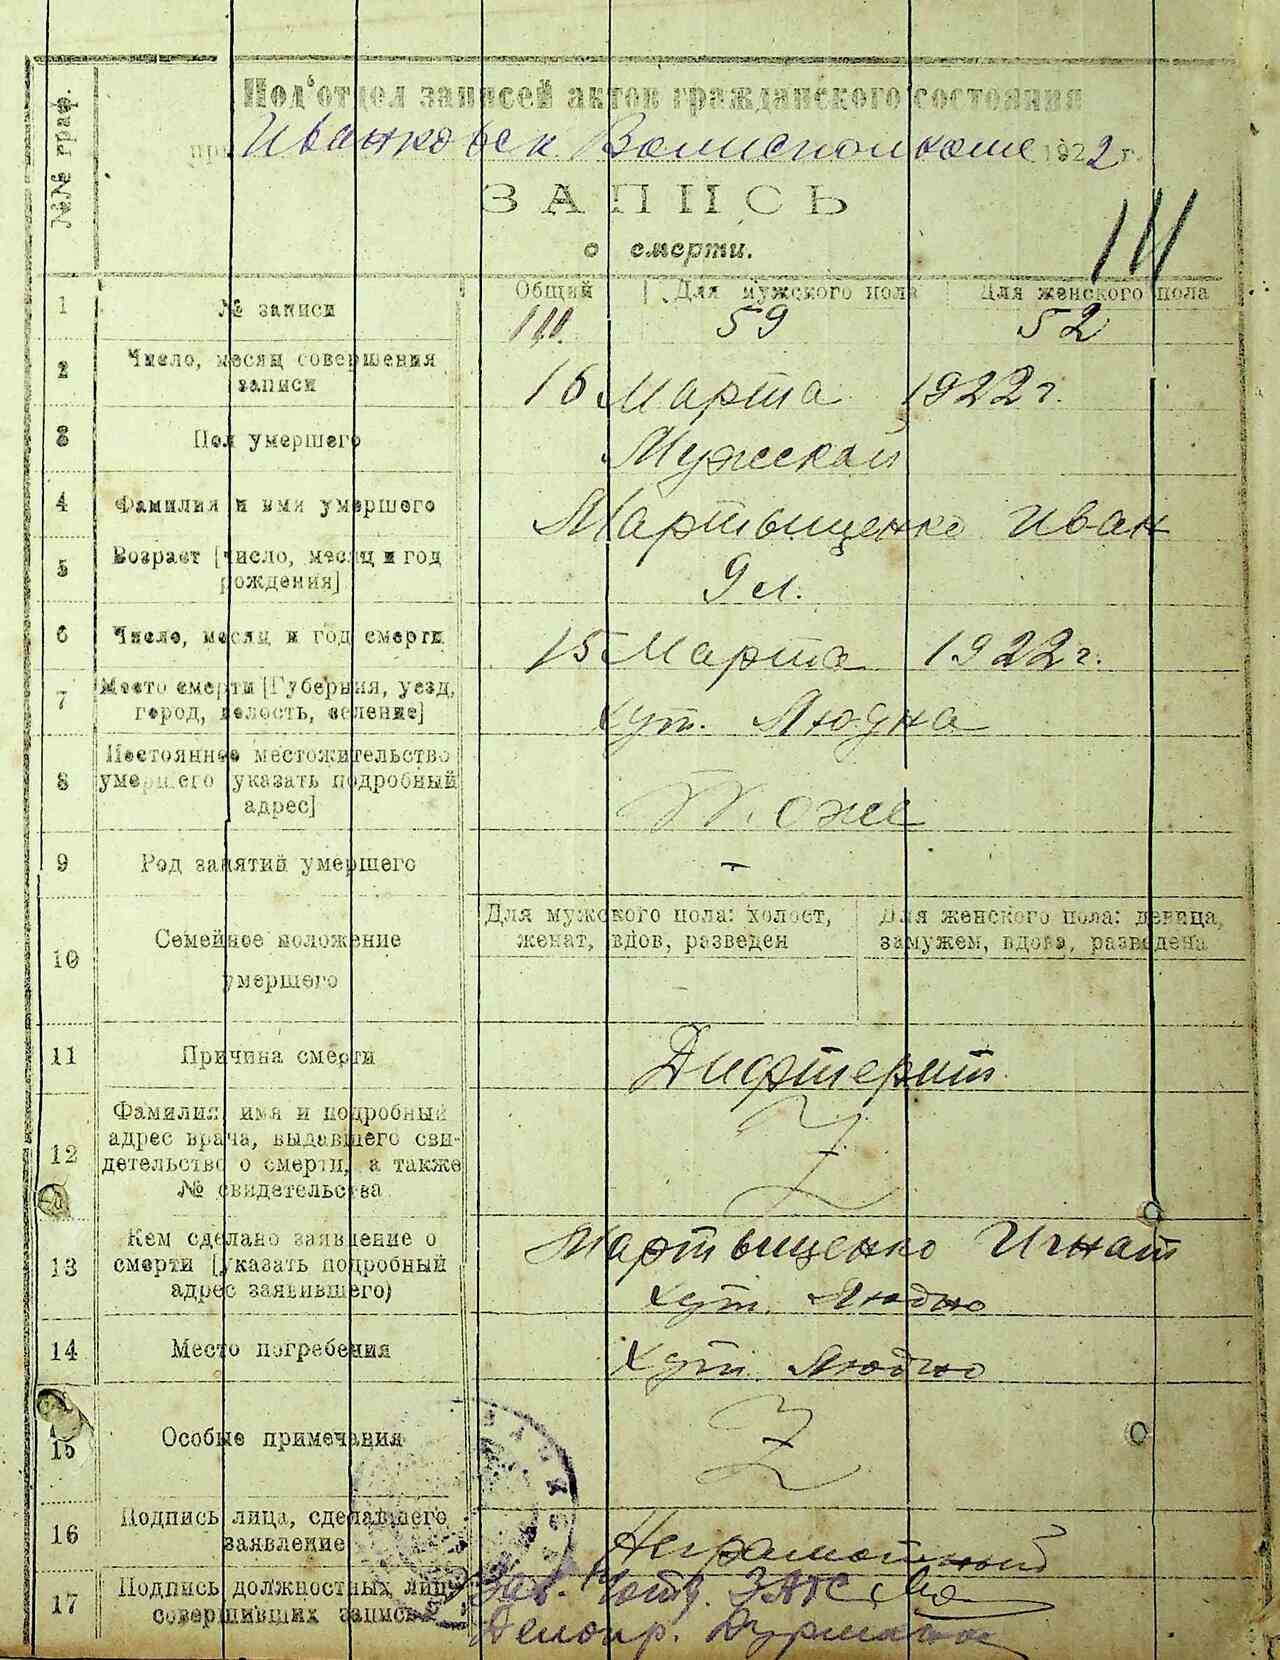 №№ граф.
Под'отдел записей актов гражданского состояния
при Иванковск Волисполкоме 1922 г.
ЗАПИСЬ
о смерти.
111
Общий Для мужского пола Для женского пола
1 № записи 111. 59 52
2 Число, месяц совершения
записи 16 Марта 1922 г.
3 Пол умершего Мужской
4 Фамилия и имя умершего Мартыщенко Иван
5 Возраст [число, месяц и год
рождения] 9 л.
6 Число, месяц и год смерти 15 Марта 1922 г.
7 Место смерти [Губерния, уезд,
город, волость, селение] хут. Людна
8 Постоянное местожительство
умершего указать подробный
адрес] Т. оже
9 Род занятий умершего -
10 Семейное положение
умершего
Для мужского пола: холост,
женат, вдов, разведен
Для женского пола: девица,
замужем, вдова, разведена
11 Причина смерти Дифтерит
12 Фамилия, имя и подробный
адрес врача, выдавшего сви-
детельство о смерти, а также
№ свидетельства Z
13 Кем сделано заявление о
смерти [указать подробный
адрес заявившего) Мартыщенко Игнат
хут. Людно
14 Место погребения хут. Людно
15 Особые примечания Z
16 Подпись лица, сделавшего
заявление Неграмотный
17 Подпись должностных лиц,
совершивших запись Зав. ЗАГС
Делопр.